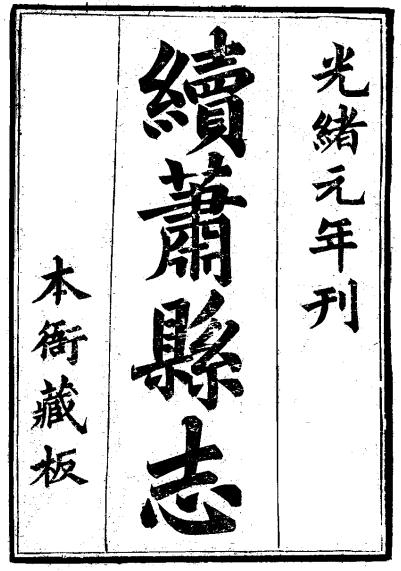 光緒元年刊
續蕭縣志
本衙藏板